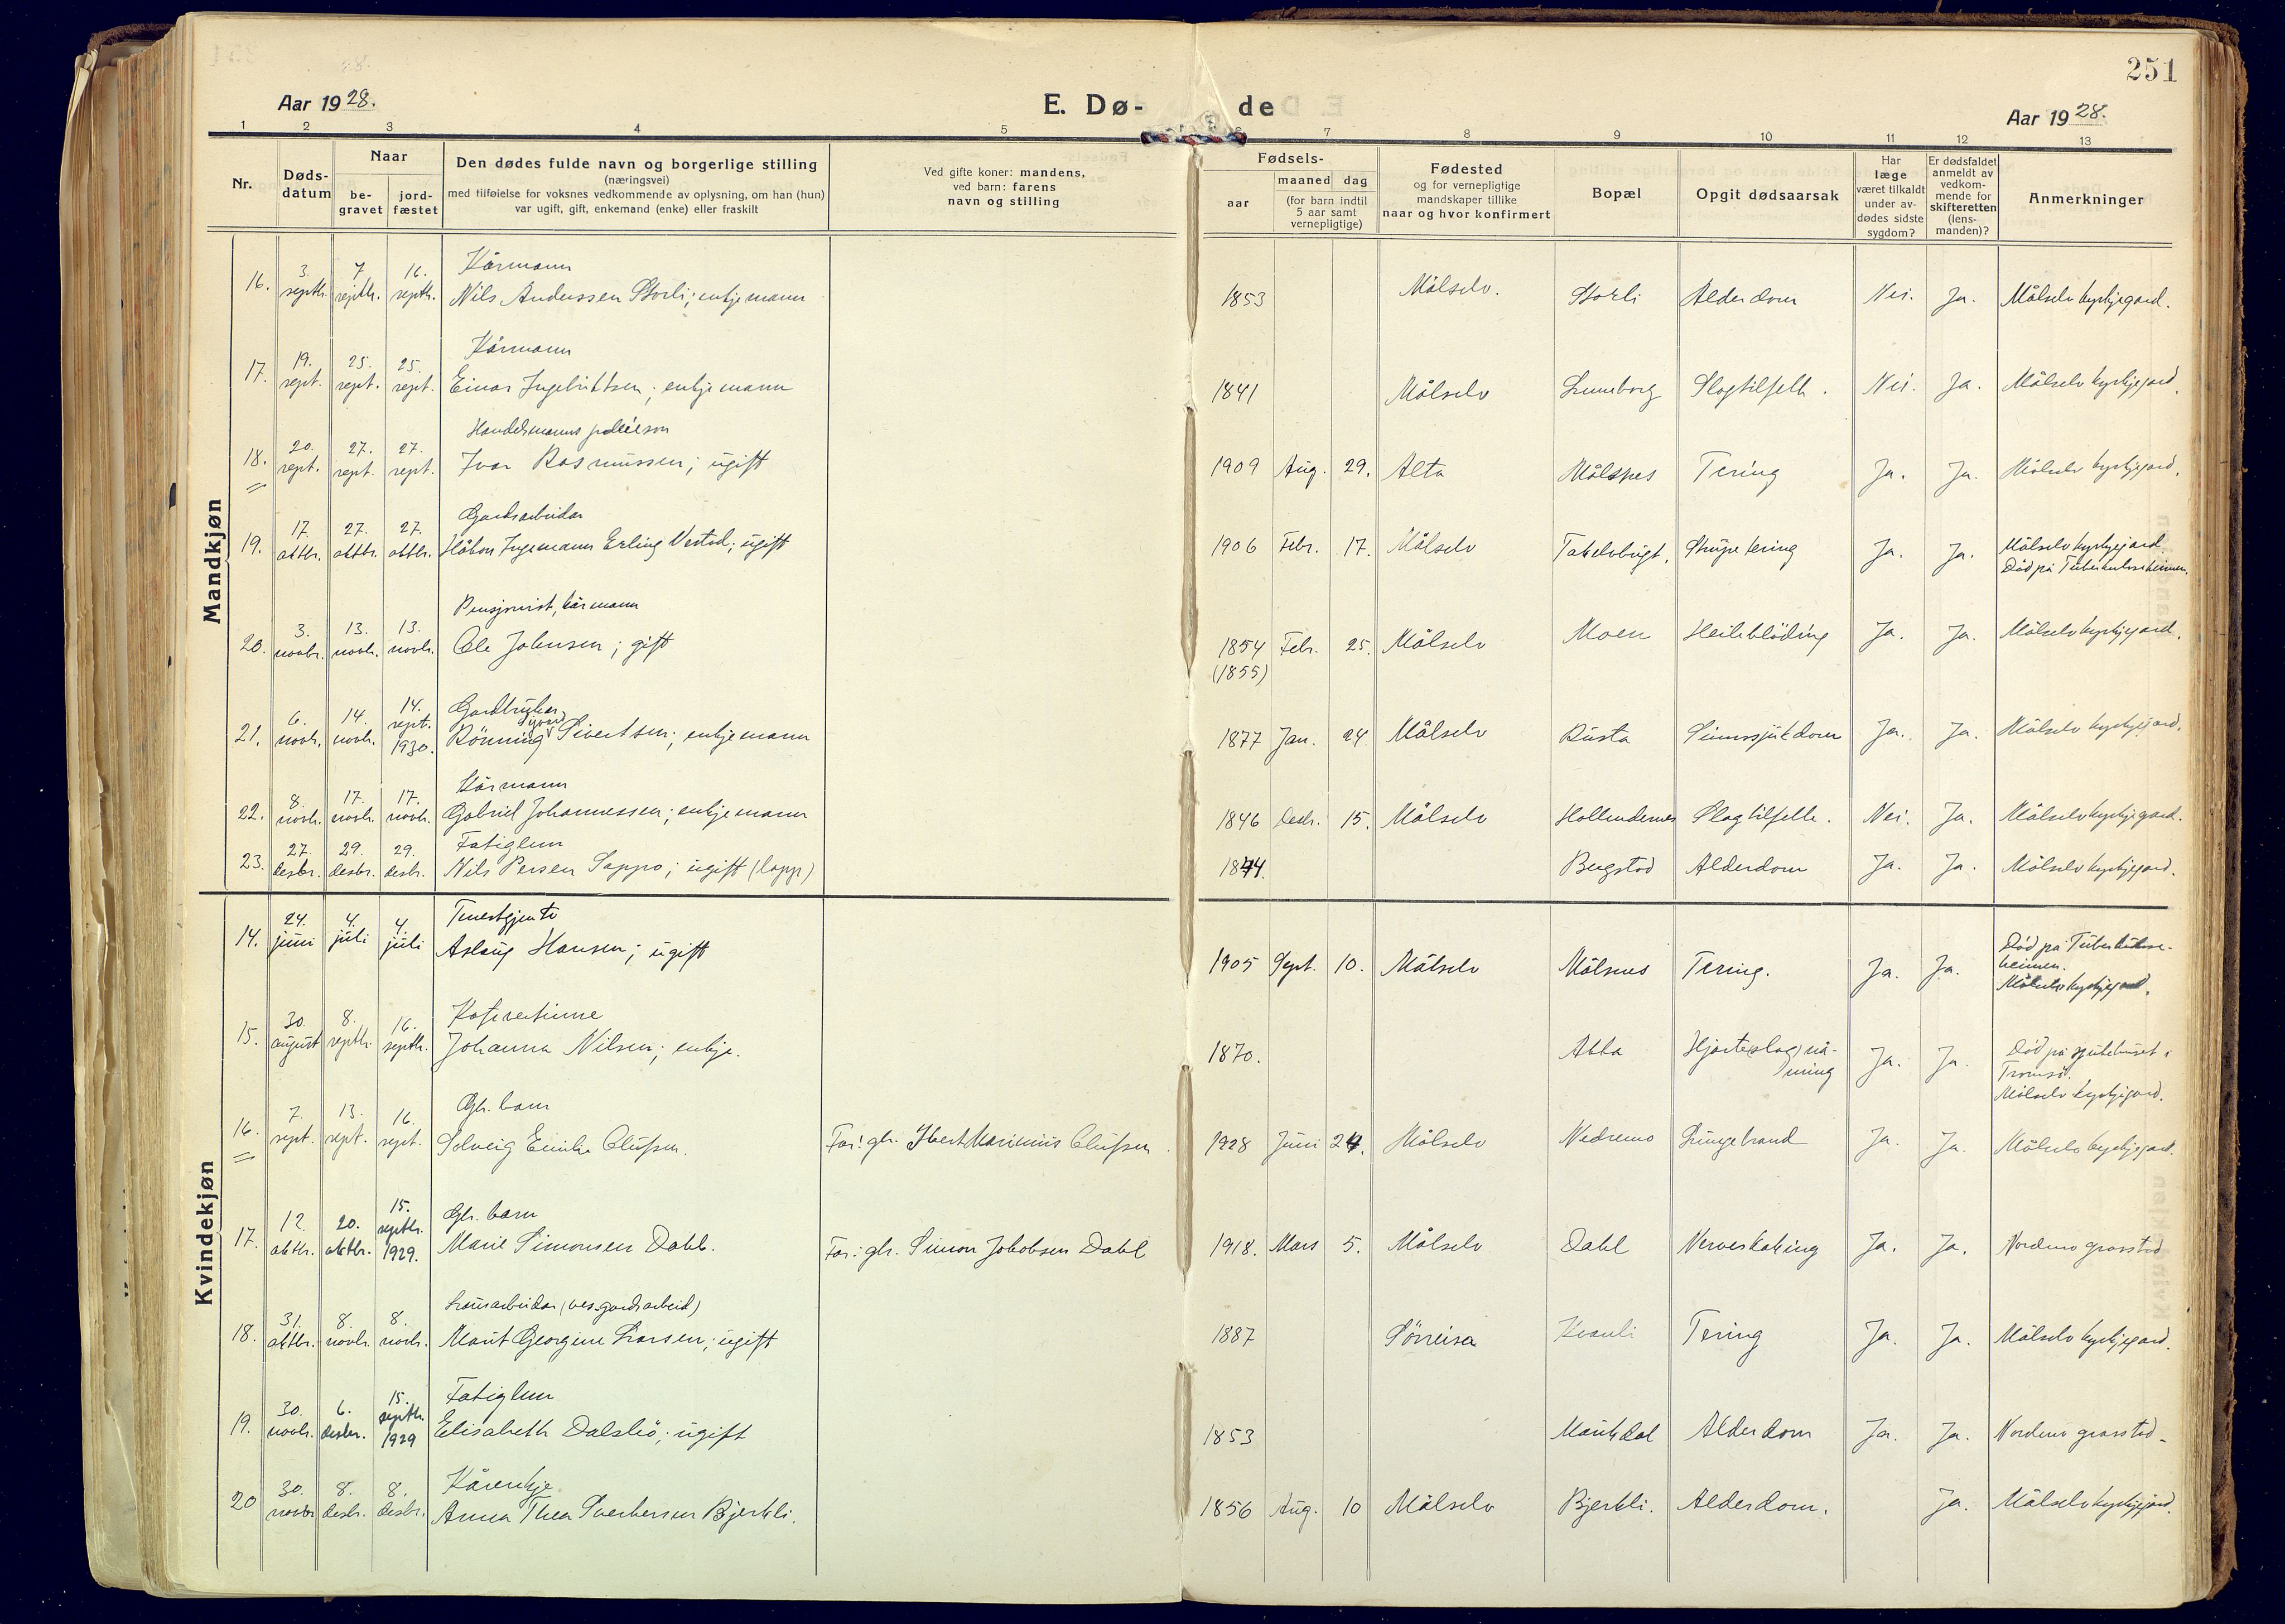 251
Aar 1928.
E. Dø-de
Aar 1928.
1 2 3 4 5 6 7 8 9 10 11 12 13
Nr.
Døds-
datum
Naar
be-
gravet
jord-
fæstet
Den dødes fulde navn og borgerlige stilling
(næringsvei)
med tilføielse for voksnes vedkommende av oplysning, om han (hun)
var ugift, gift, enkemand (enke) eller fraskilt
Ved gifte koner: mandens,
ved barn: farens
navn og stilling
Fødsels-
aar
maaned dag
(for barn indtil
5 aar samt
vernepligtige)
Fødested
og for vernepligtige
mandskaper tillike
naar og hvor konfirmert
Bopæl
Opgit dødsaarsak
Har
læge
været tilkaldt
under av-
dødes sidste
sygdom?
Er dødsfaldet
anmeldt av
vedkom-
mende for
skifteretten
(lens-
manden)?
Anmerkninger
Mandkjøn
Kårmann
16. 3. septbr. 7 septbr. 16. septbr. Nils Anderssen Storli; enkjemann 1853 Målselv. Storli Alderdom Nei. Ja. Målselv kyrkjegard.
Kårmann
17. 19. sept. 25. sept. 25. sept. Einar Ingebriktsen; enkjemann 1841 Målselv Luneborg Slagtilfelle. Nei. Ja. Målselv kyrkjegard.
Handelsmanns
18. 20. sept. 27. sept. 27. sept. Ivar Rasmussen; ugift 1909 Aug. 29. Alta Målsnes Tering Ja. Ja. Målselv kyrkjegard.
Gardsarbeidar
19. 17. oktbr. 27. oktbr. 27. oktbr. Håkon Ingemann Erling Vestad; ugift 1906 Febr. 17. Målselv Takelvbugt. Strupetering Ja. Ja. Målselv kyrkjegard.
Död på Tuberkuloseheimen.
Pensjonist, kårmann
20. 3. novbr. 13. novbr. 13. novbr. Ole Johnsen; gift 1854 Febr. 25. Målselv Moen Heilebløding Ja. Ja. Målselv kyrkjegard.
(1855)
Gardbrukar
21. 6. novbr. 14. novbr. 14. sept. 1930. Rönning Sivertsen; enkjemann 1877 Jan. 24. Målselv Rusta Sinnssjukdom Ja. Ja. Målselv kyrkjegard.
Kårmann
22. 8. novbr. 17. novbr. 17. novbr. Gabriel Johannessen; enkjemann 1846 Desbr. 15. Målselv Hollendernes Slagtilfelle. Nei. Ja. Målselv kyrkjegard.
Fatiglem
23. 27. desbr. 29. desbr. 29. desbr. Nils Persen Sappo; ugift (lapp) 1844. Bergstad Alderdom Ja. Ja. Målselv kyrkjegard.
Kvindekjøn
Tenestgjente
14. 24. juni 4. juli 4. juli Aslaug Hansen; ugift 1905 Sept. 10. Målselv Målsnes Tering. Ja. Ja. Död på Tuberkulose-
heimen.
Målselv kyrkjegard.
15. 30. august 8. septbr. 16. septbr. Johanna Nilsen; enkje. 1870. Hjarteslag Ja. Ja. Död på sjukehuset i
Tromsö.
Målselv kyrkjegard.
Gbr. barn
16. 7. sept. 13. sept. 16. sept. Solveig Emilie Olufsen. Far: gbr. Marenius Olufsen 1928 Juni 24. Målselv Nedremo Lungebrand Ja. Ja. Målselv kyrkjegard.
Gbr. barn
17. 12. oktbr. 20. oktbr. 15. septbr. 1929. Marie Simonsen Dahl. Far: gbr. Simon Jakobsen Dahl 1918. Mars 5. Målselv Dahl Nerveskaking Ja. Ja. Nordmo gravstad
Lausarbeidar (ves. gardsarbeid)
18. 31. oktbr. 8. novbr. 8. novbr. Marit Georgine Larsen; ugift 1887 Sörreisa Kvanli Tering Ja. Ja. Målselv kyrkjegard.
Fatiglem
19. 30. novbr. 6. desbr. 15. septbr. 1929 Elisabeth Dalsbö; ugift 1853 Maukdal Alderdom Ja. Ja. Nordmo gravstad
Kårenkje
20 30. novbr 8. desbr. 8. desbr. Anna Thea Sverkersen Bjerkli. 1856 Aug. 10 Målselv Bjerkli. Alderdom. Ja. Målselv kyrkjegard.